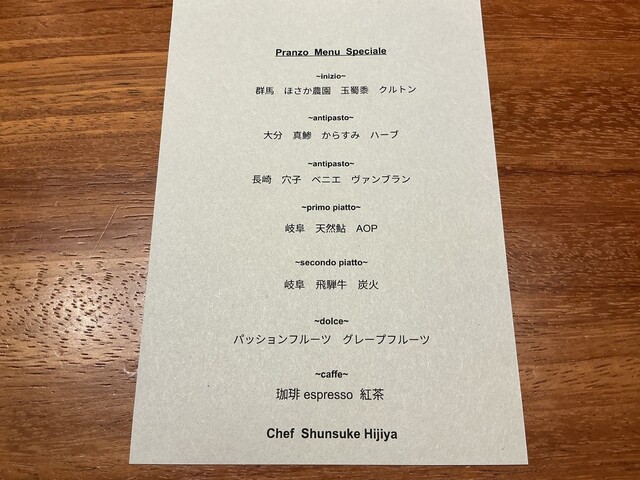 Pranzo Menu Speciale
~inizio~
群馬 ほさか農園 玉蜀黍 クルトン
~antipasto~
大分 真鯵 からすみ ハーブ
~antipasto~
長崎 穴子 ベニエ ヴァンブラン
~primo piatto~
岐阜 天然鮎 AOP
~secondo piatto~
岐阜 飛騨牛 炭火
~dolce~
パッションフルーツ グレープフルーツ
~caffe~
珈琲 espresso 紅茶
Chef Shunsuke Hijiya